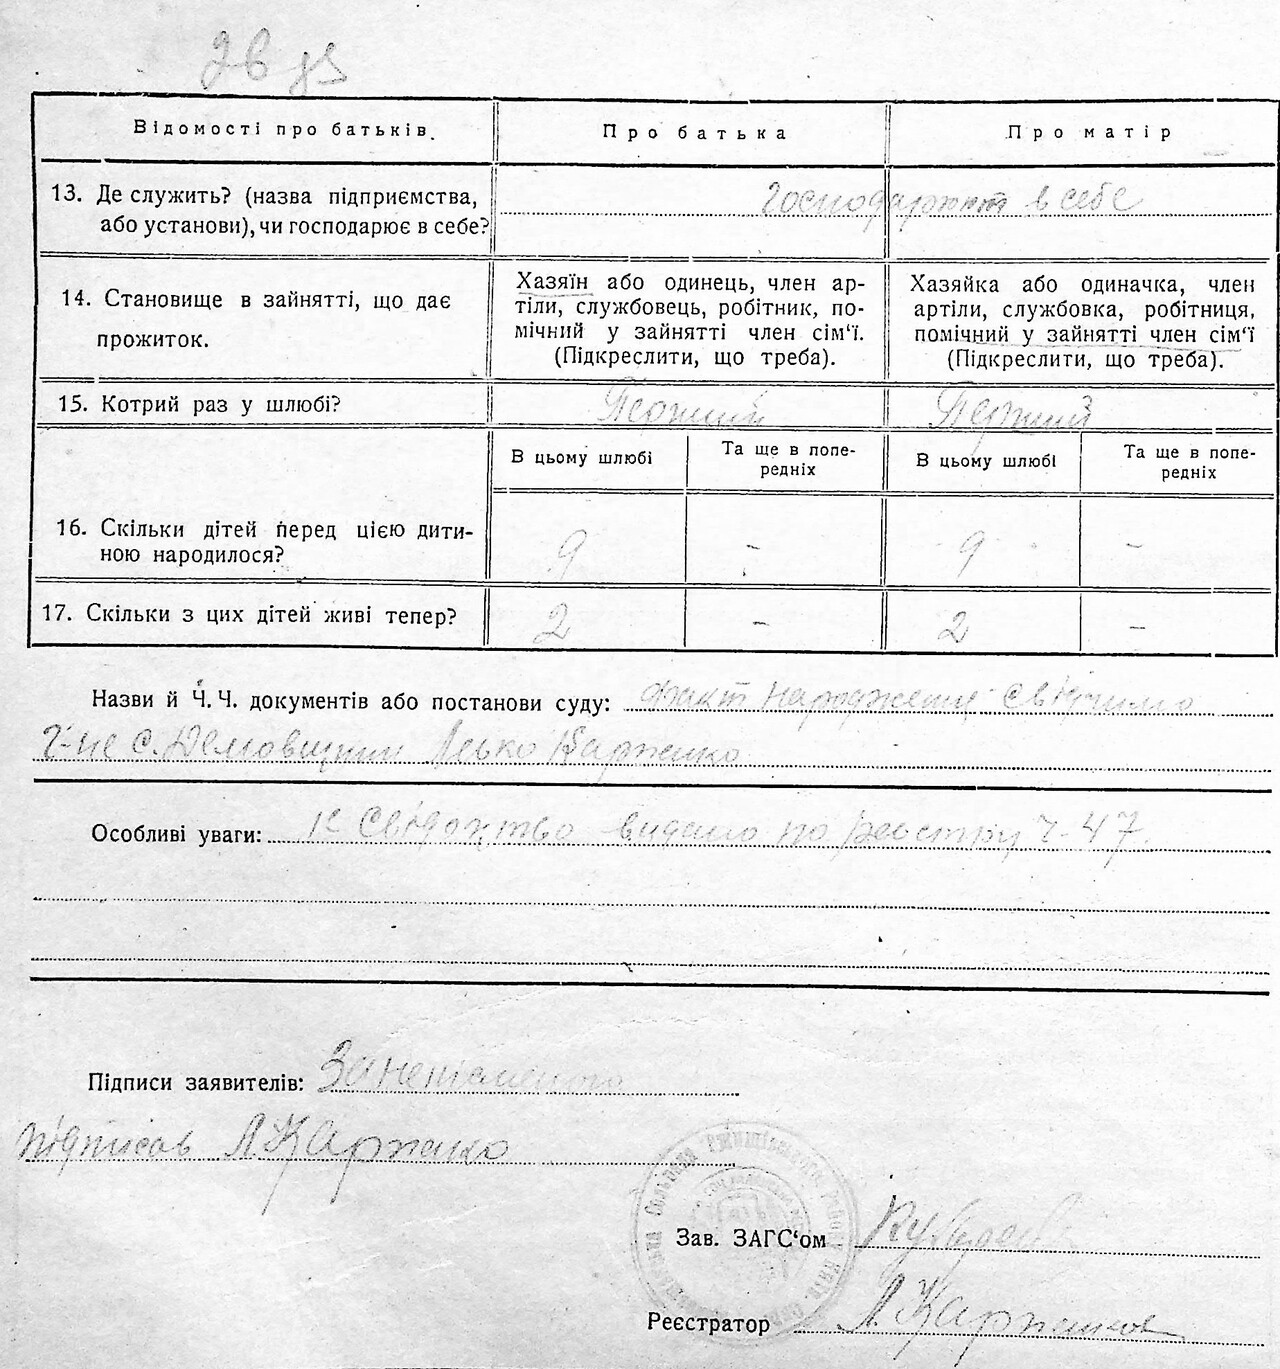 Відомості про батьків.
Про батька
Про матір
13. Де служить? (назва підприємства,
або установи), чи господарює в себе?
Господарюют в себе
14. Становище в зайнятті, що дає
прожиток.
Хазяїн або одинець, член ар-
тілі, службовець, робітник, по-
мічний у зайнятті член сім‘ї.
(Підкреслити, що треба).
Хазяйка або одиначка, член
артілі, службовка, робітниця,
помічний у зайнятті член сім‘ї
(Підкреслити, що треба).
15. Котрий раз у шлюбі?
Перший
Перший
В цьому шлюбі
Та ще в попе-
редніх
В цьому шлюбі
Та ще в попе-
редніх
16. Скільки дітей перед цією дити-
ною народилося?
9 - 9 -
17. Скільки з цих дітей живі тепер?
2 - 2 -
Назви й Ч. Ч. документів або постанови суду: факт народження
с. Демовщини Карпенко
Особливі уваги: Свідоцтво видано по реєстру Ч-47.
Підписи заявителів: За неписьменого
підписав Л. Карпенко
Зав. ЗАГС‘ом
Реєстратор Л. Карпенко